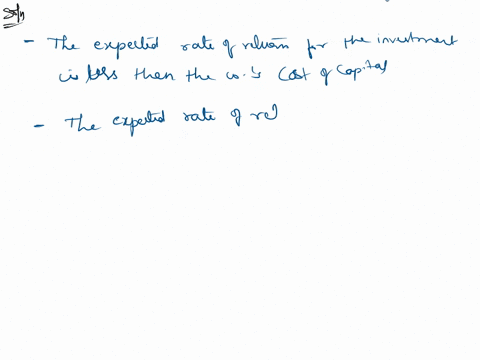 Soln
- The expected rate of return for the investment
is less then the co.'s Cost of Capital
- The expected rate of ret